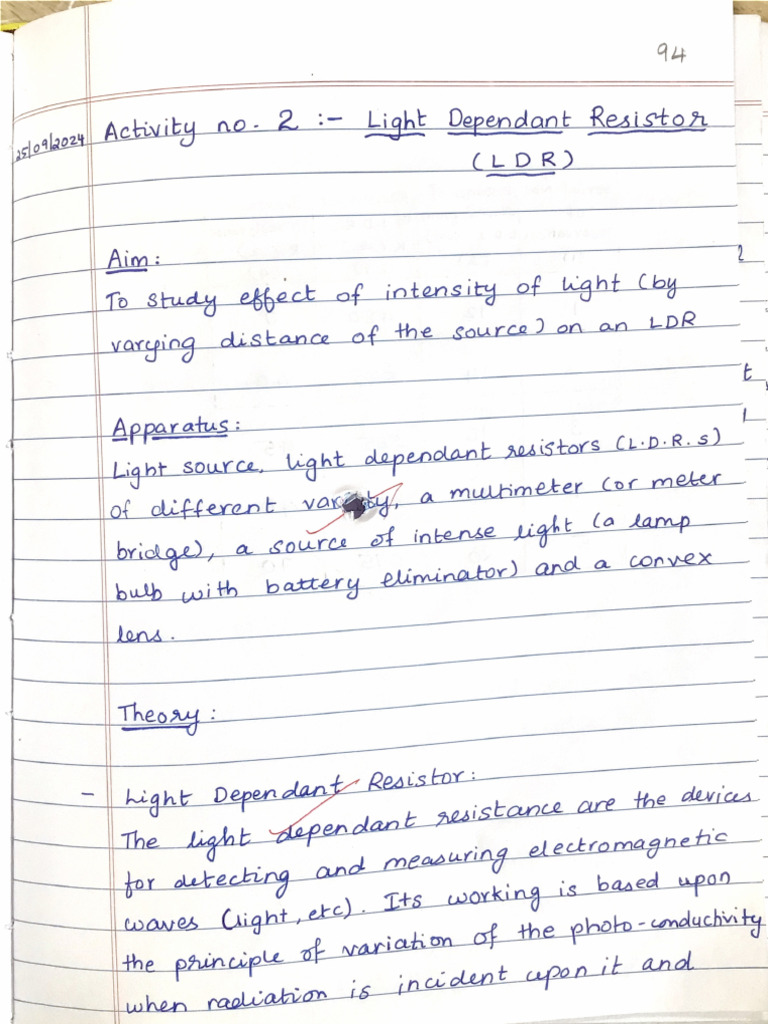 94
25/09/2024 Activity no. 2 :- Light Dependant Resistor
(LDR)
Aim:
To study effect of intensity of light (by
varying distance of the source) on an LDR
Apparatus:
Light source, light dependant resistors (L.D.R.s)
of different variety, a multimeter (or meter
bridge), a source of intense light (a lamp
bulb with battery eliminator) and a convex
lens.
Theory:
- Light Dependant Resistor:
The light dependant resistance are the devices
for detecting and measuring electromagnetic
waves (light, etc). Its working is based upon
the principle of variation of the photo-conductivity
when radiation is incident upon it and